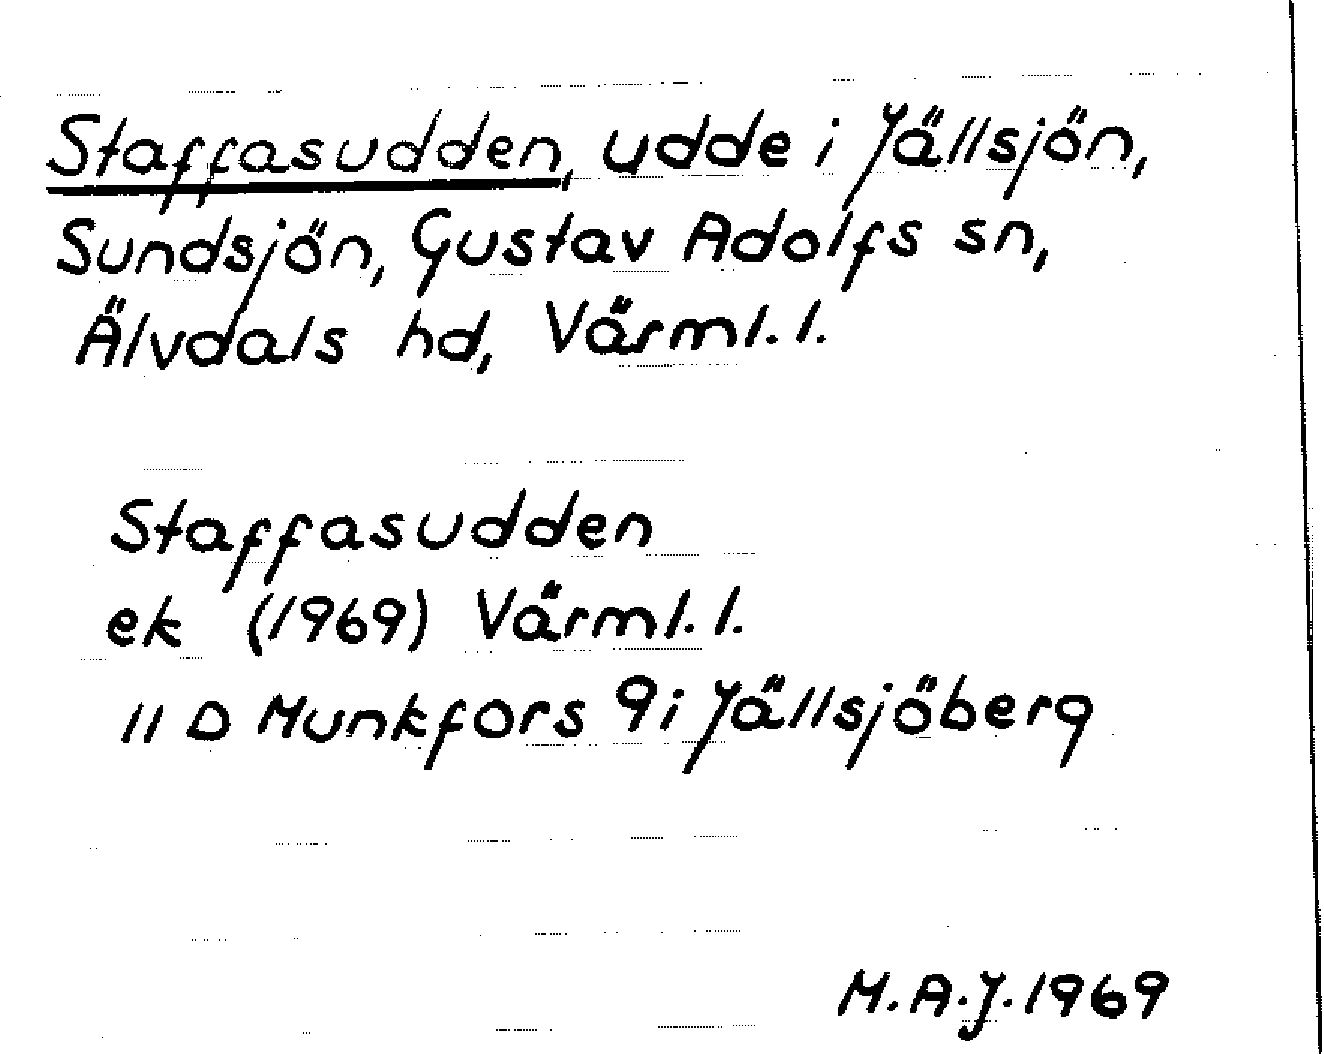 Staffasudden, udde i Jällsjön,
Sundsjön, Gustav Adolfs sn,
Älvdals hd, Värml. l.
Staffasudden
ek (1969) Värml. l.
11 D Munkfors 9i Jällsjöberg
M.A.J. 1969